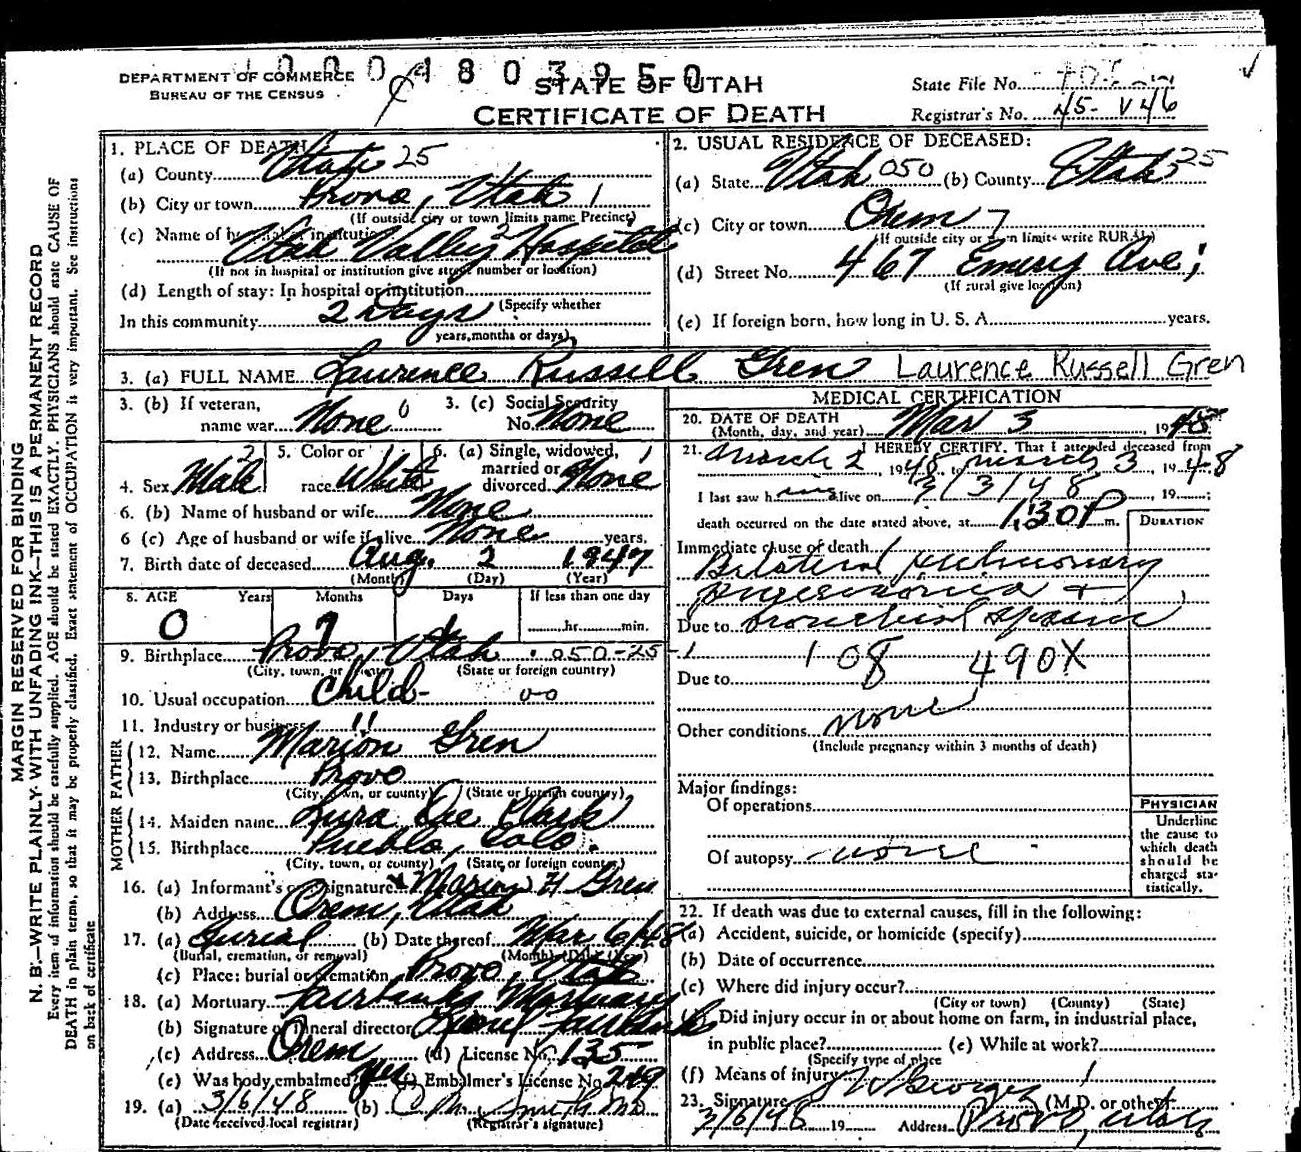 DEPARTMENT OF COMMERCE
BUREAU OF THE CENSUS
STATE OF UTAH
CERTIFICATE OF DEATH
State File No.
Registrar's No. 45- V46
MARGIN RESERVED FOR BINDING
N. B.—WRITE PLAINLY WITH UNFADING INK—THIS IS A PERMANENT RECORD
Every item of information should be carefully supplied. AGE should be stated EXACTLY. PHYSICIANS should state CAUSE OF
DEATH in plain terms, so that it may be properly classified. Exact statement of OCCUPATION is very important. See instructions
on back of certificate
1. PLACE OF DEATH
(a) County Utah 25
(b) City or town Provo, Utah 1
(If outside city or town limits name Precinct)
(c) Name of hospital or institution
Utah Valley Hospital
(If not in hospital or institution give street number or location)
(d) Length of stay: In hospital or institution
(Specify whether
In this community 2 Days
years, months or days)
2. USUAL RESIDENCE OF DECEASED:
(a) State Utah 050 (b) County Utah 25
(c) City or town Orem 7
(If outside city or town limits write RURAL)
(d) Street No. 467 Emery Ave;
(If rural give location)
(e) If foreign born, how long in U. S. A. years.
3. (a) FULL NAME Laurence Russell Gren Laurence Russell Gren
3. (b) If veteran,
name war None 0
3. (c) Social Security
No. None
4. Sex Male 2
5. Color or
race White 1
6. (a) Single, widowed,
married or
divorced None 1
6. (b) Name of husband or wife None
6 (c) Age of husband or wife if alive None years.
7. Birth date of deceased Aug. 2 1947
(Month) (Day) (Year)
8. AGE Years Months Days If less than one day
0 7 1 hr. min.
9. Birthplace Provo, Utah 050-25
(City, town, or county) (State or foreign country)
10. Usual occupation Child- 00
11. Industry or business "
FATHER
12. Name Marion Gren
13. Birthplace Provo
(City, town, or county) (State or foreign country)
MOTHER
14. Maiden name Dee Clark
15. Birthplace Pueblo, Colo.
(City, town, or county) (State or foreign country)
16. (a) Informant's signature Marion H Gren
(b) Address Orem, Utah
17. (a) Burial (b) Date thereof Mar 6/48
(Burial, cremation, or removal) (Month) (Day) (Year)
(c) Place: burial or cremation Provo, Utah
18. (a) Mortuary Fairbanks Mortuary
(b) Signature of funeral director Fairbanks
(c) Address Orem (d) License No. 135
(e) Was body embalmed yes (f) Embalmer's License No. 249
19. (a) 3/6/48 (b) C M Smith MD
(Date received local registrar) (Registrar's signature)
MEDICAL CERTIFICATION
20. DATE OF DEATH
(Month, day, and year) Mar 3, 1948
21. I HEREBY CERTIFY, That I attended deceased from
March 2, 1948, to March 3, 1948
I last saw him alive on 3/3/48, 19 ;
death occurred on the date stated above, at 1:30P m.
DURATION
Immediate cause of death
Bilateral pulmonary
pneumonia +
Due to bronchial spasm
108 490X
Due to
Other conditions none
(Include pregnancy within 3 months of death)
Major findings:
Of operations
Of autopsy none
PHYSICIAN
Underline
the cause to
which death
should be
charged sta-
tistically.
22. If death was due to external causes, fill in the following:
(a) Accident, suicide, or homicide (specify)
(b) Date of occurrence
(c) Where did injury occur?
(City or town) (County) (State)
Did injury occur in or about home on farm, in industrial place,
in public place? (e) While at work?
(Specify type of place
(f) Means of injury
23. Signature (M.D. or other)
3/6/48 19 Address Provo, Utah